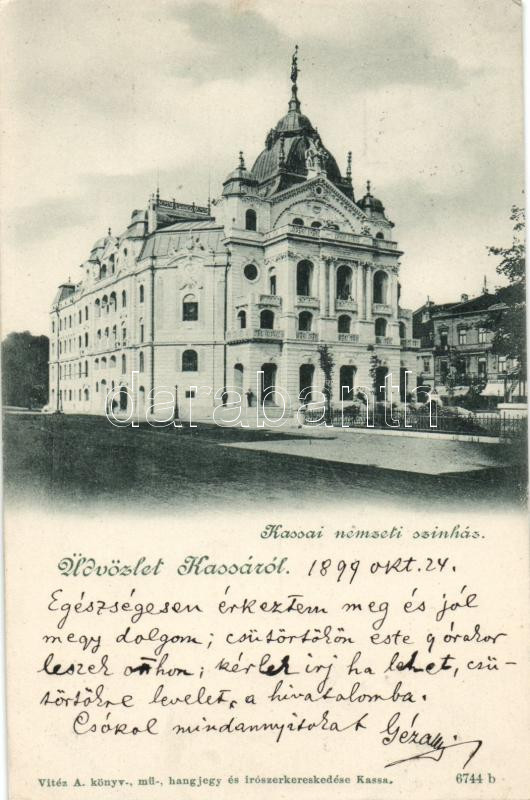 darabanth
Kassai nemzeti szinház.
Üdvözlet Kassáról. 1899 okt. 24.
Egészségesen érkeztem meg és jól
megy dolgom; csütörtökön este 9 órakor
leszek otthon; kérlek irj ha lehet, csü-
törtökre levelet, a hivatalomba.
Csókol mindannyitokat Géza
Vitéz A. könyv-, mű-, hangjegy és irószerkereskedése Kassa. 6744 b